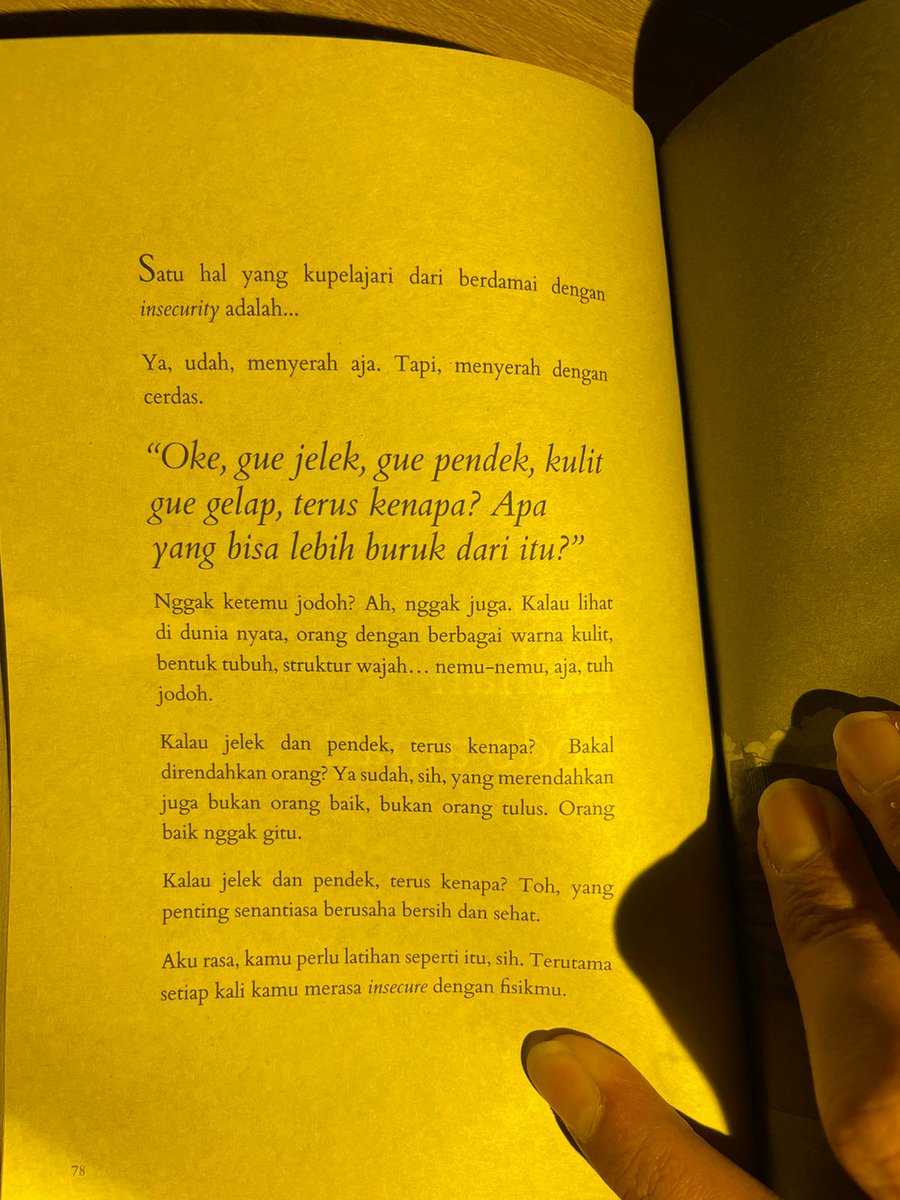 Satu hal yang kupelajari dari berdamai dengan
insecurity adalah...
Ya, udah, menyerah aja. Tapi, menyerah dengan
cerdas.
“Oke, gue jelek, gue pendek, kulit
gue gelap, terus kenapa? Apa
yang bisa lebih buruk dari itu?”
Nggak ketemu jodoh? Ah, nggak juga. Kalau lihat
di dunia nyata, orang dengan berbagai warna kulit,
bentuk tubuh, struktur wajah… nemu-nemu, aja, tuh
jodoh.
Kalau jelek dan pendek, terus kenapa? Bakal
direndahkan orang? Ya sudah, sih, yang merendahkan
juga bukan orang baik, bukan orang tulus. Orang
baik nggak gitu.
Kalau jelek dan pendek, terus kenapa? Toh, yang
penting senantiasa berusaha bersih dan sehat.
Aku rasa, kamu perlu latihan seperti itu, sih. Terutama
setiap kali kamu merasa insecure dengan fisikmu.
78